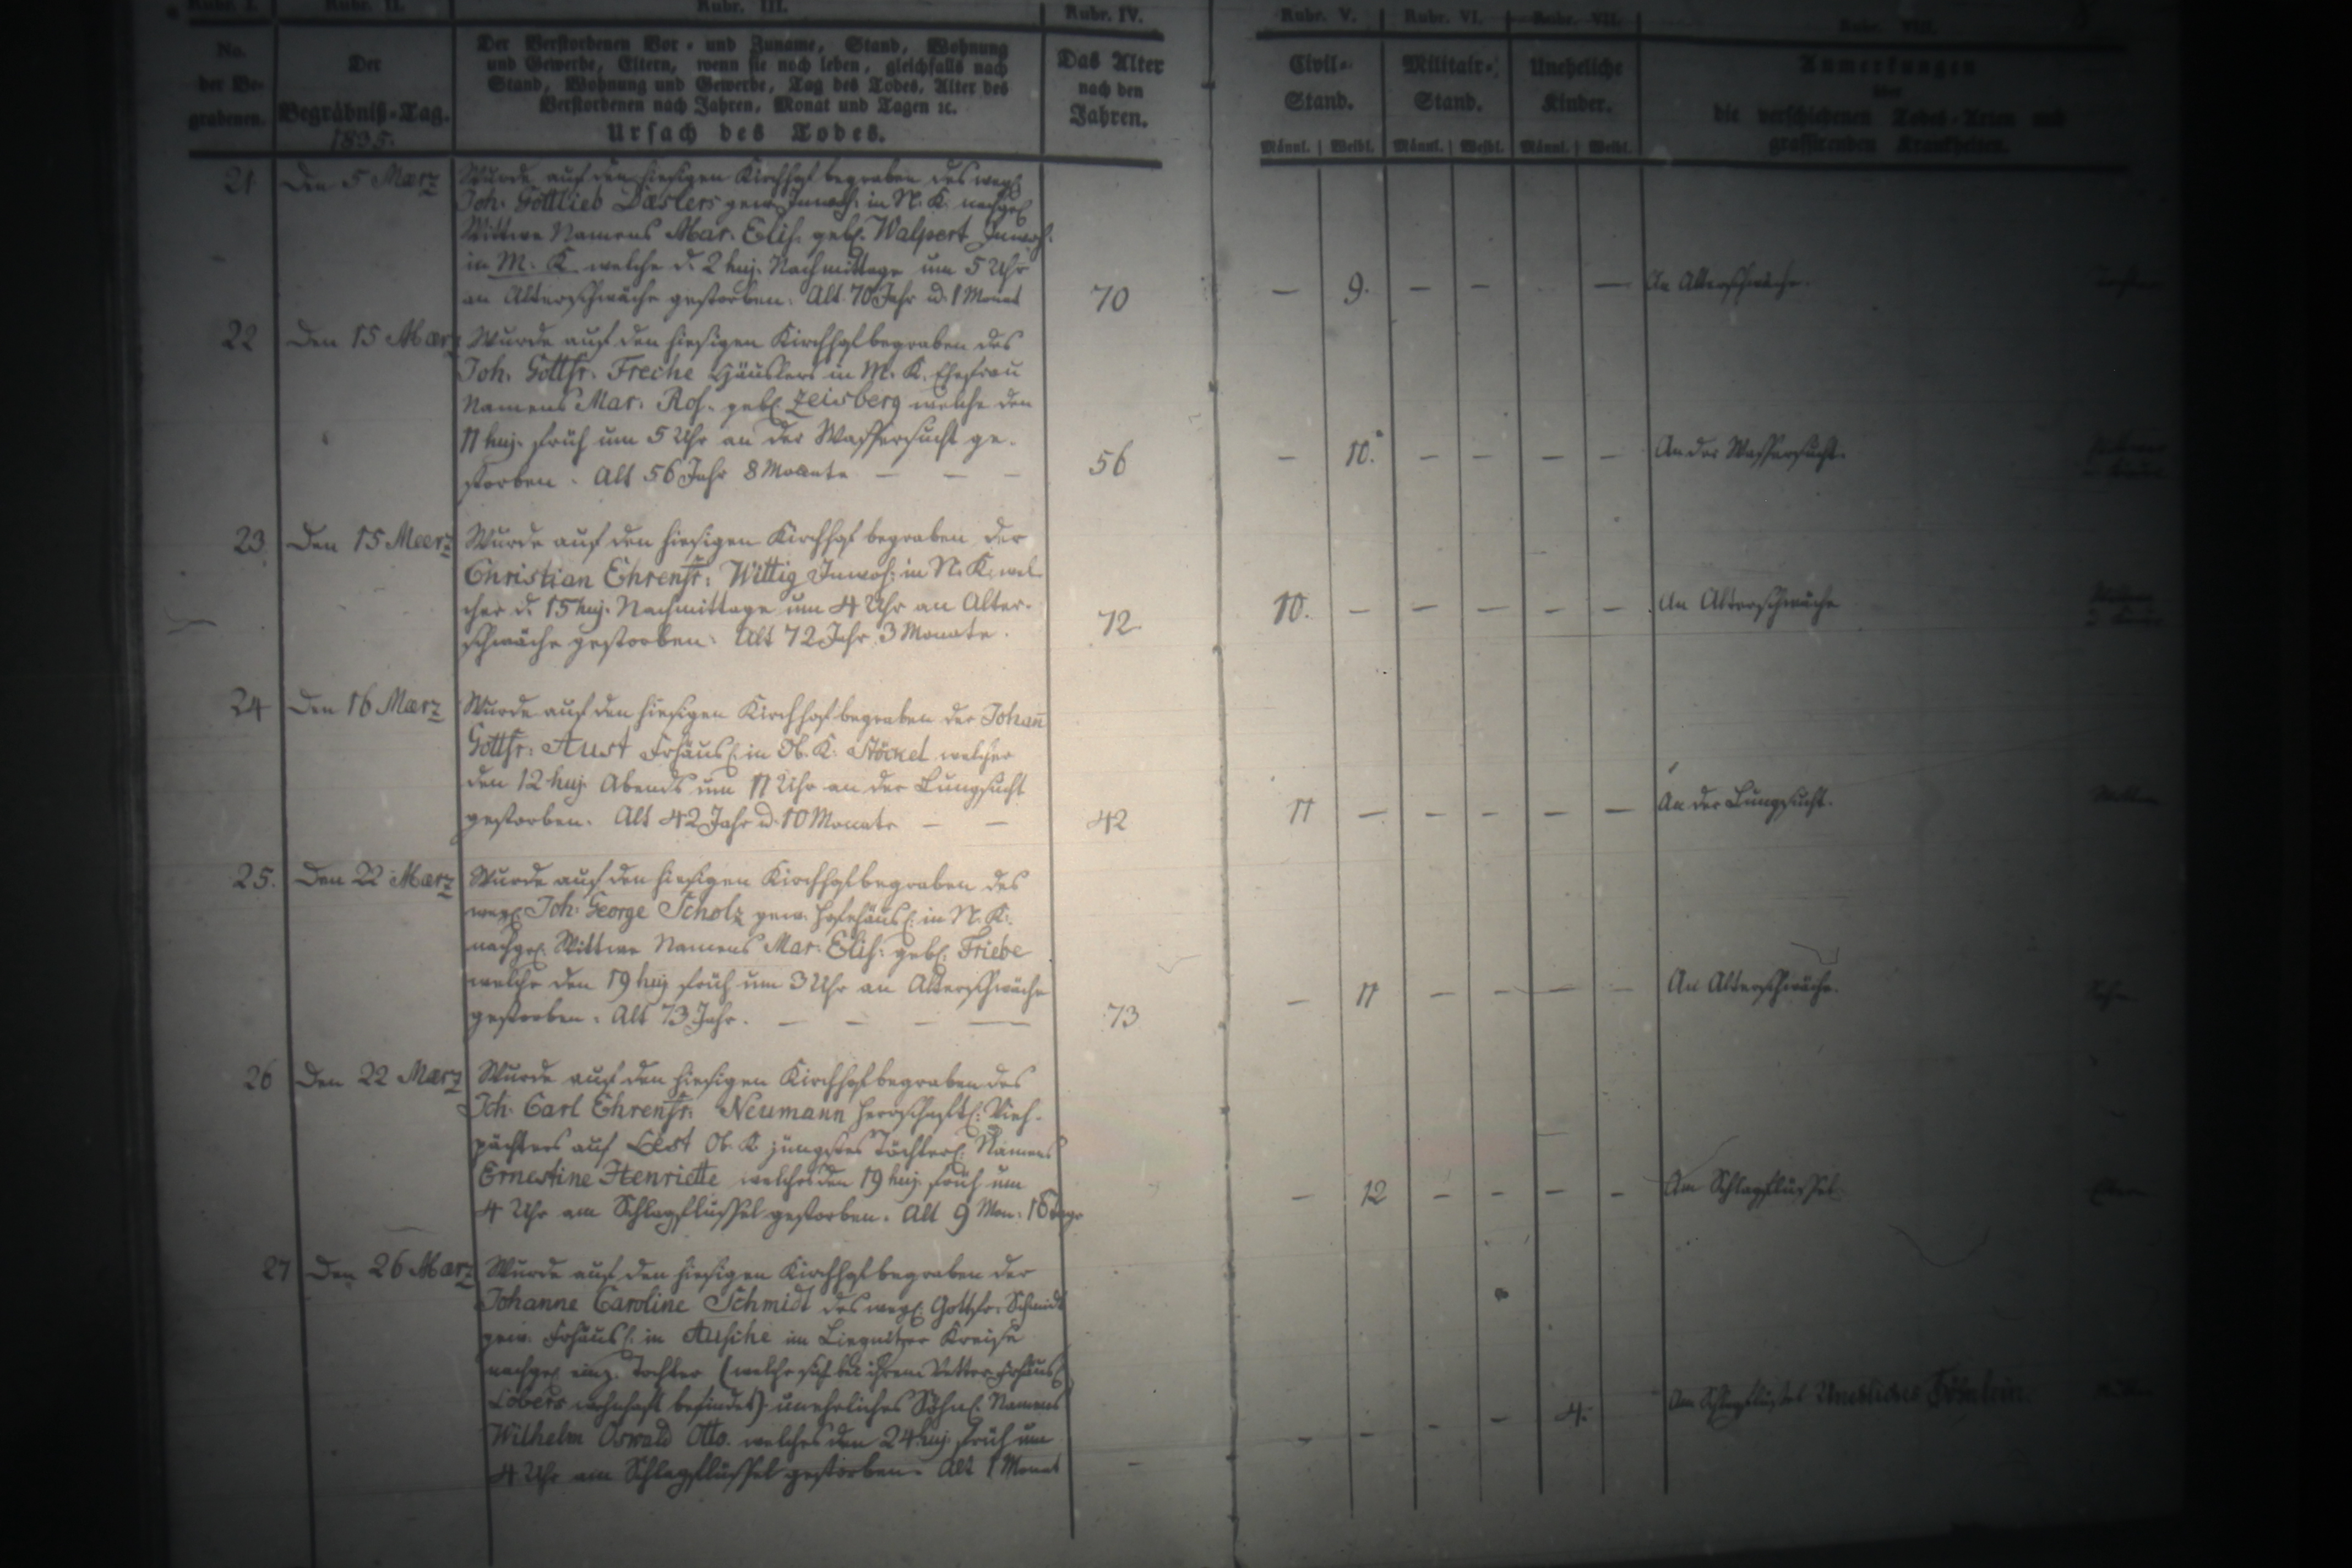 Rubr. I. Rubr. II. Rubr. III. Rubr. IV. Rubr. V. Rubr. VI. Rubr. VII. Rubr. VIII.
No.
der Be-
grabenen.
Der
Begräbniß-Tag.
1835.
Der Verstorbenen Vor- und Zuname, Stand, Wohnung
und Gewerbe, Eltern, wenn sie noch leben, gleichfalls nach
Stand, Wohnung und Gewerbe, Tag des Todes, Alter des
Verstorbenen nach Jahren, Monat und Tagen ꝛc.
Ursach des Todes.
Das Alter
nach den
Jahren.
Civil-
Stand.
Männl. Weibl.
Militair-
Stand.
Männl. Weibl.
Uneheliche
Kinder.
Männl. Weibl.
Anmerkungen
über
die verschiedenen Todes-Arten und
grassirenden Krankheiten.
21 Den 5 Maerz
Wurde auf den hiesigen Kirchhof begraben des weyl.
Joh. Gottlieb Daeslers gew. Inwoh. in N. K. nachgel.
Wittwe Namens Mar. Elis. gebl. Walpert Inwoh.
in M. K. welche d. 2 huj. Nachmittage um 5 Uhr
an Alterschwäche gestorben. Alt 70 Jahr u. 1 Monat
70 — 9. — — — An Alterschwäche.
22 Den 15 Maerz
Wurde auf den hiesigen Kirchhof begraben des
Joh. Gottfr. Freche Häuslers in M. K. Ehefrau
Namens Mar. Ros. gebl. Zeisberg welche den
11 huj. früh um 5 Uhr an der Wassersucht ge-
storben. Alt 56 Jahr 8 Monate — — —
56 — 10. — — — — An der Wassersucht.
23. Den 15 Maerz
Wurde auf den hiesigen Kirchhof begraben der
Christian Ehrenfr. Wittig Inwoh. in N. K. wel-
cher d. 15 huj. Nachmittage um 4 Uhr an Alter-
schwäche gestorben. Alt 72 Jahr 3 Monate.
72 10. — — — — — An Alterschwäche
24 Den 16 Maerz
Wurde auf den hiesigen Kirchhof begraben der Johañ
Gottfr. Aust Frhäusl. in Ob. K. Stöckel welcher
den 12 huj. Abends um 11 Uhr an der Lungsucht
gestorben. Alt 42 Jahr u. 10 Monate — —
42 11 — — — — — An der Lungsucht.
25. Den 22 Maerz
Wurde auf den hiesigen Kirchhof begraben des
weyl. Joh. George Scholz gew. Hofehäusl. in N. K.
nachgel. Wittwe Namens Mar. Elis. gebl. Friebe
welche den 19 huj. früh um 3 Uhr an Alterschwäche
gestorben. Alt 73 Jahr. — — — —
73 — 11 — — — — An Alterschwäche.
26 Den 22 Maerz
Wurde auf den hiesigen Kirchhof begraben des
Joh. Carl Ehrenfr. Neumann herrschaftl. Vieh-
pächters auf Ob. K. jüngstes Töchterl. Namens
Ernestine Henriette welches den 19 huj. früh um
4 Uhr am Schlagflüssel gestorben. Alt 9 Mon. 16 Tage
— 12 — — — — Am Schlagflüssel
27 Den 26 Maerz
Wurde auf den hiesigen Kirchhof begraben der
Johanne Caroline Schmidt des weyl. Gottfr. Schmidt
gew. Frhäusl. in Ausche im Liegnitzer Kreise
nachgel. einz. Tochter (welche sich bei ihrem Vetter Frhäusl.
Lobers wohnhaft befindet) uneheliches Söhnl. Namens
Wilhelm Oswald Otto. welches den 24 huj. früh um
4 Uhr am Schlagflüssel gestorben. Alt 1 Monat
— — — — — 4. Am Schlagflüssel Unehliches Söhnlein.